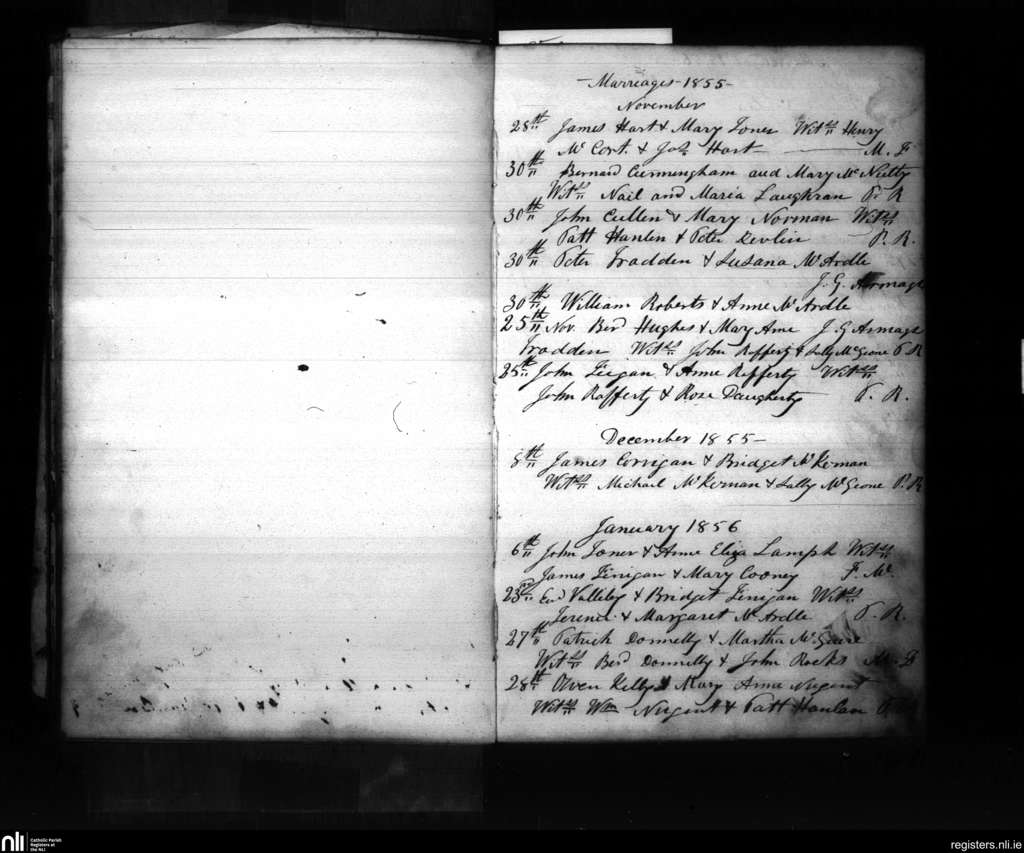 Marriages 1855
November
28th James Hart & Mary Toner Witss Henry
Mc Cort. & Jos Hart — M. F
30th Bernard Cunningham and Mary McNulty
Witss Nail and Maria Laughran P. R
30th John Cullen & Mary Norman Witss
Patt Hanlen & Peter Devlin P. R.
30th Peter Fradden & Susana McArdle
J. G. Armagh
30th William Roberts & Anne McArdle
25th Nov Berd Hughes & Mary Ane J G Armagh
Fradden Witss John Rafferty & Sally McGeone P R
25th John Feegan & Anne Rafferty Witss
John Rafferty & Rose Daugherty P. R.
December 1855
8th James Corrigan & Bridget McKernan
Witss Michael McKernan & Sally McGeone P. R
January 1856
6th John Toner & Anne Eliza Lamph Witss
James Finigan & Mary Cooney F. Mc.
23rd Ed Vallely & Bridget Finigan Witss
Terence & Margaret McArdle P. R.
27th Patrick Donnelly & Martha McGuire
Witss Berd Donnelly & John Rocks M. F
28th Owen Kelly & Mary Anne Nugent
Witss Wm Nugent & Patt Hanlan P
nli
Catholic Parish
Registers at
the NLI
registers.nli.ie